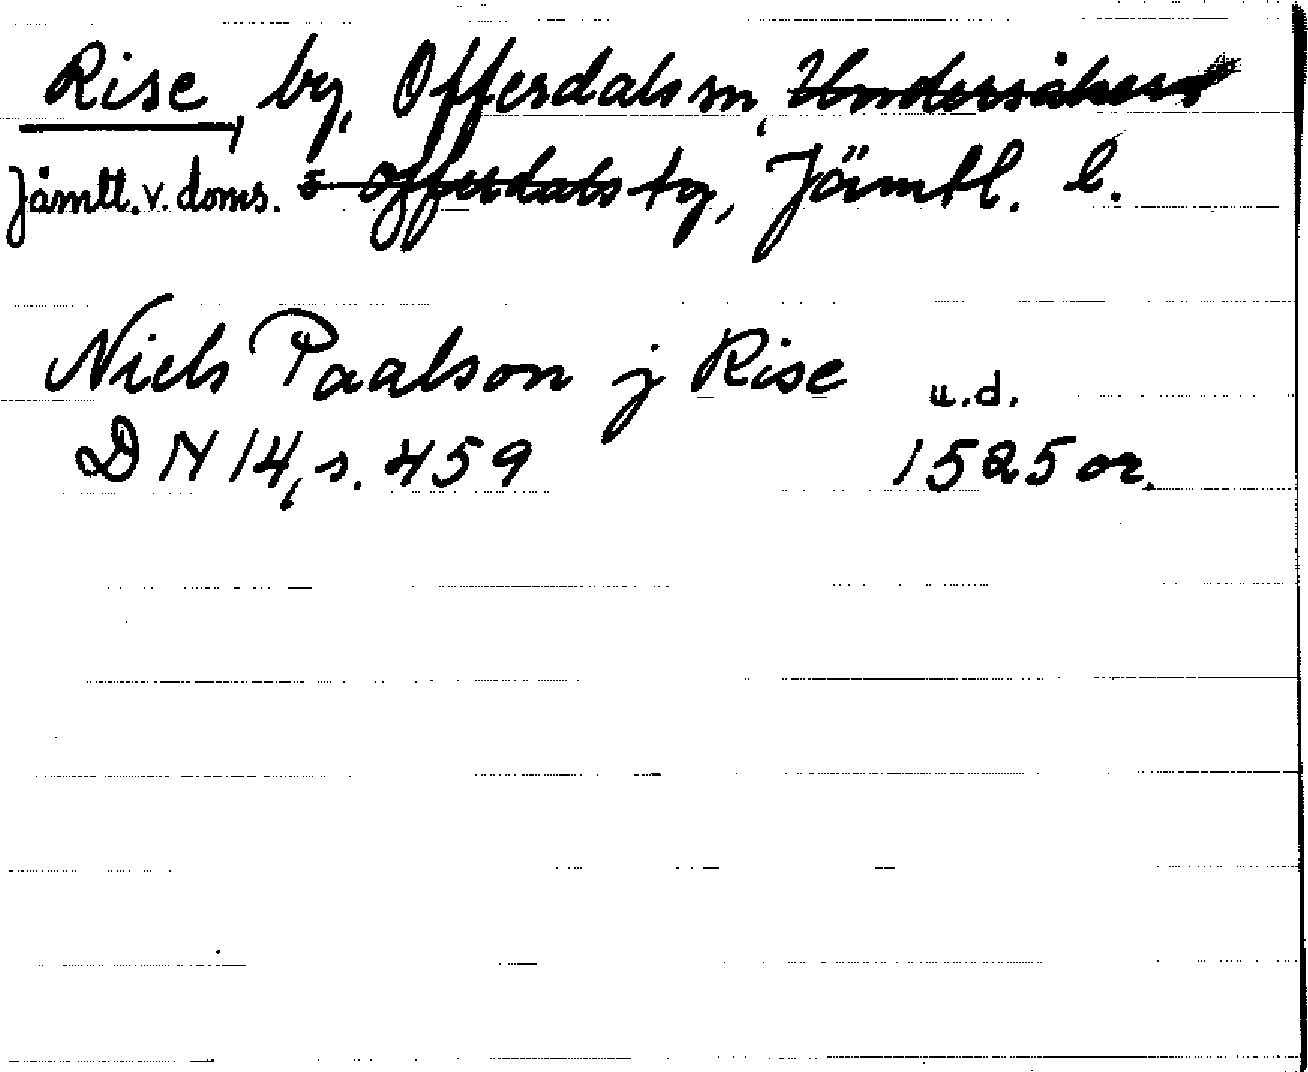 Rise, by, Offerdals sn, Undersåkers
Jämtl. v. doms. o. Offerdals tg, Jämtl. l.
Niels Paalson j Rise u.d.
DN 14, s. 459 1525 or.